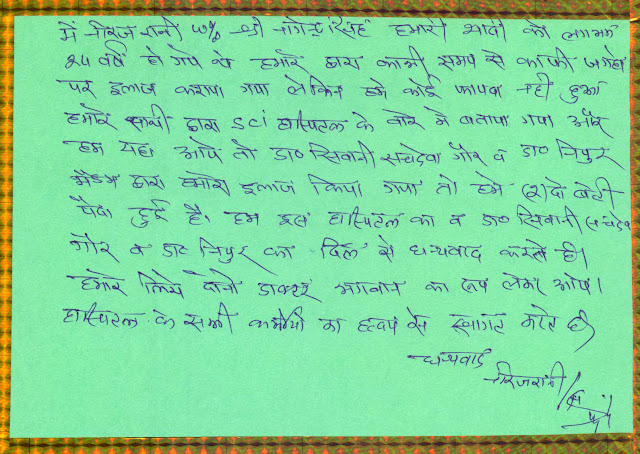 में नीरज रानी w/o श्री नगेन्द्र सिंह हमारी शादी को लगभग
24 वर्ष हो गये थे हमारे द्वारा काफी समय से काफी जगहो
पर इलाज कराया गया लेकिन हमे कोई फायदा नही हुआ
हमारे साथी द्वारा SCI हास्पिटल के बारे मे बताया गया और
हम यहा आये तो डा० शिवानी सचदेवा गौर व डा० निपुर
मैडम द्वारा हमारा इलाज किया गया तो हमे (2) दो बेटी
पैदा हुई है, हम इस हास्पिटल का व डा० शिवानी सचदेव
गौर व डा० निपुर का दिल से धन्यवाद करते है।
हमारे लिये दोनो डाक्टर भगवान का रूप लेकर आये।
हास्पिटल के सभी कर्मीयो का हृदय से स्वागत करते है।
धन्यवाद
नीरजरानी